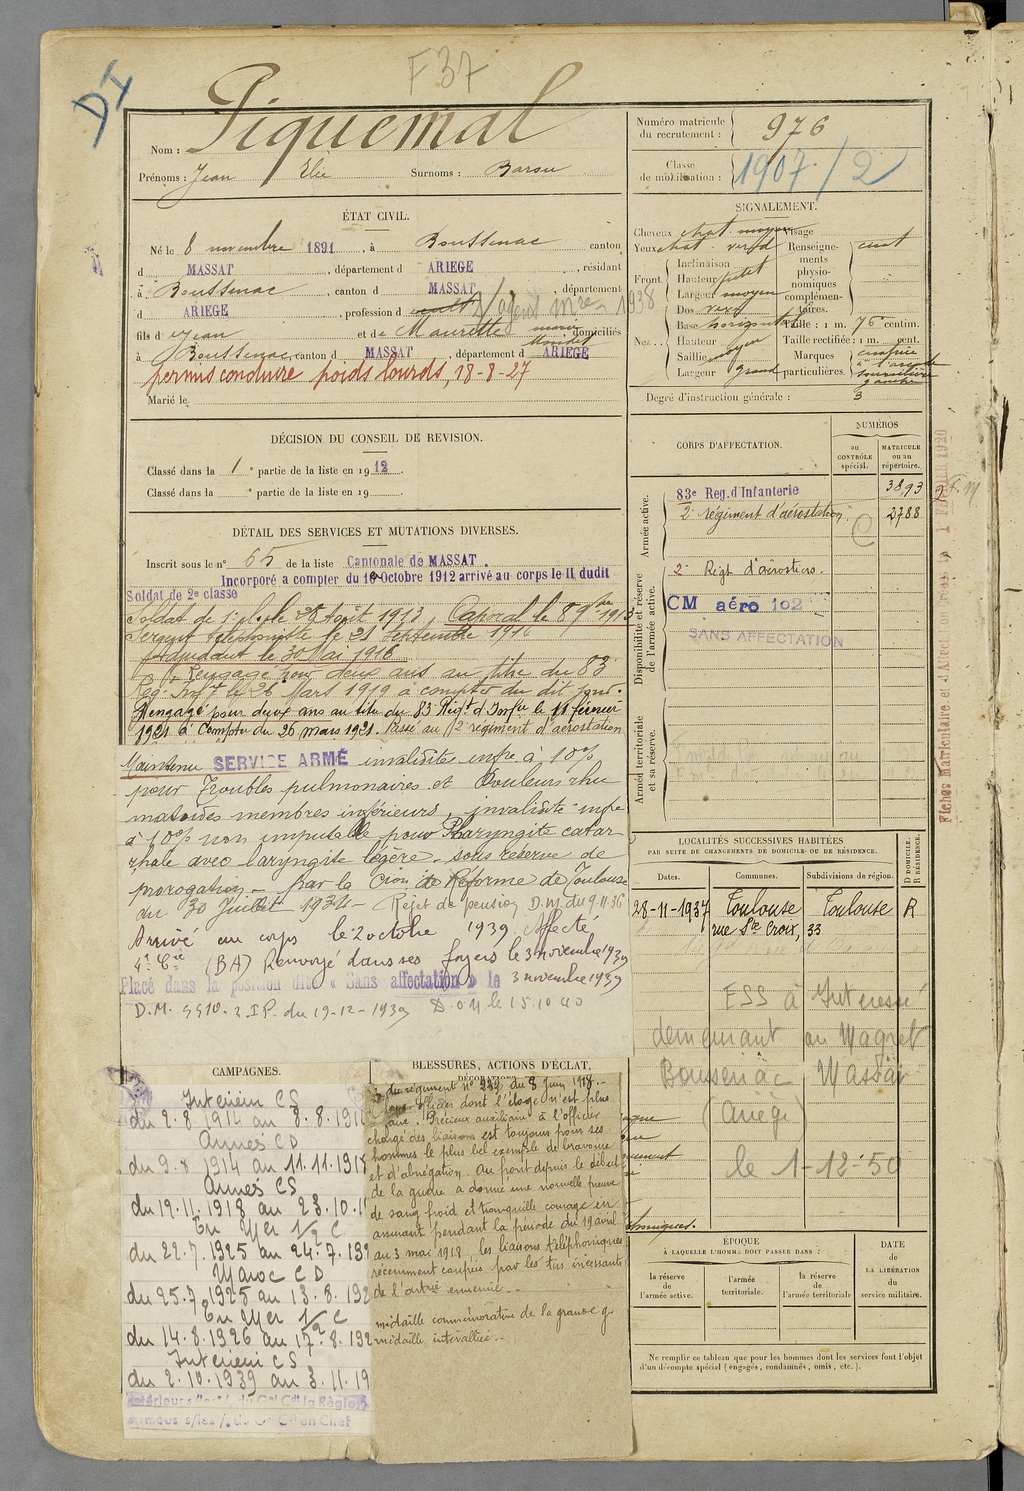 F 37
DI
Piquemal
Nom :
Prénoms : Jean Elie Surnoms : Barou
ÉTAT CIVIL.
Né le 8 novembre 1891, à Boussenac canton
d MASSAT, département d ARIEGE, résidant
à Boussenac, canton d MASSAT, département
d ARIEGE, profession d cult 2/ agent 1938
fils d Jean et de Maurette domiciliés
à Boussenac canton d MASSAT, département d ARIEGE
permis conduire poids lourds, 18-8-27
Marié le
DÉCISION DU CONSEIL DE REVISION.
Classé dans la 1e partie de la liste en 1912.
Classé dans la e partie de la liste en 19
DÉTAIL DES SERVICES ET MUTATIONS DIVERSES.
Inscrit sous le n° 65 de la liste Cantonale de MASSAT.
Incorporé a compter du 10 Octobre 1912 arrivé au corps le II dudit
Soldat de 2e classe
Soldat de 1e cl. le Août 1913, Caporal le 8 9bre 1913
Sergent téléphoniste le 21 Septembre 1914
Adjudant le 30 Mai 1916
Rengagé pour deux ans au titre du 83
Reg. Inft le 26 Mars 1919 a compter du dit jour.
Rengagé pour deux ans au titre du 83 Régt d'Infie le 11 février
1921 à compter du 26 mars 1921. Passé au 2 régiment d'aérostation
Maintenu SERVICE ARMÉ invalidité infre à 10%
pour Troubles pulmonaires et Douleurs rhu
matoïdes membres inférieurs, invalidité infre
à 10% non imputable pour Pharyngite catar
rhale avec laryngite légère - sous réserve de
prorogation - par la Cion de Réforme de Toulouse
du 30 Juillet 1934 - Rejet de pension D.M. du 9.11.36
Arrivé au corps le 2 octobre 1939 Affecté
4e Cie (BA) Renvoyé dans ses foyers le 3 novembre 1939
Placé dans la position dite « Sans affectation » le 3 novembre 1939
D.M. 5510.2.IP. du 19-12-1939 le 15.10.40
CAMPAGNES.
Intérieur CS
du 2.8.1914 au 8.8.191
Armés CD
du 9.8 1914 au 11.11.1918
Armés CS
du 12.11.1918 au 23.10.1
En Mer 1/2 C
du 22.7.1925 au 24.7.192
Maroc CD
du 25.7.1925 au 13.8.192
En Mer 1/2 C
du 14.8.1926 au 17.8.192
Intérieur CS
du 2.10.1939 au 3.11.19
BLESSURES, ACTIONS D'ÉCLAT,
du régiment n° 232 du 8 Juin 1918.
officier dont l'éloge n'est plus
à faire. Précieux auxiliaire à l'officier
chargé des liaisons est toujours pour ses
hommes le plus bel exemple de bravoure
et d'abnégation. Au front depuis le début
de la guerre a donné une nouvelle preuve
de sang froid et tranquille courage en
assurant pendant la période du 19 avril
au 3 mai 1918, les liaisons téléphoniques
récemment coupées par les tirs incessants
de l'artrie ennemie.
médaille commémorative de la grande g.
médaille interalliée
Numéro matricule du recrutement : 976
Classe de mobilisation : 1907/2
SIGNALEMENT.
Cheveux chat. moyen
Yeux chat. verd
Front
Inclinaison
Hauteur petit
Largeur moyen
Nez
Dos
Base horizontal
Hauteur
Saillie moyen
Largeur grand
Renseignements physionomiques complémentaires.
Taille : 1 m. 76 centim.
Taille rectifiée : 1 m. cent.
Marques particulières. gauche
Degré d'instruction générale : 3
CORPS D'AFFECTATION.
NUMÉROS
au CONTRÔLE spécial.
MATRICULE ou au répertoire.
Armée active.
83e Reg. d'Infanterie 3893
2e régiment d'aérostation. 2788
C
Disponibilité et réserve de l'armée active.
2e Régt d'aérostiers.
CM aéro 102
SANS AFFECTATION
Armée territoriale et sa réserve.
LOCALITÉS SUCCESSIVES HABITÉES
PAR SUITE DE CHANGEMENTS DE DOMICILE OU DE RÉSIDENCE.
Dates. Communes. Subdivisions de région. D DOMICILE. R RÉSIDENCE.
28-11-1937 Toulouse Toulouse R
rue Ste Croix, 33
FSS à Intéressé
demeurant au Magret
Boussenac Massat
(Ariège)
le 1-12-50
ÉPOQUE
À LAQUELLE L'HOMME DOIT PASSER DANS :
la réserve de l'armée active.
l'armée territoriale.
la réserve de l'armée territoriale
DATE de LA LIBÉRATION du service militaire.
Ne remplir ce tableau que pour les hommes dont les services font l'objet
d'un décompte spécial (engagés, condamnés, omis, etc.).